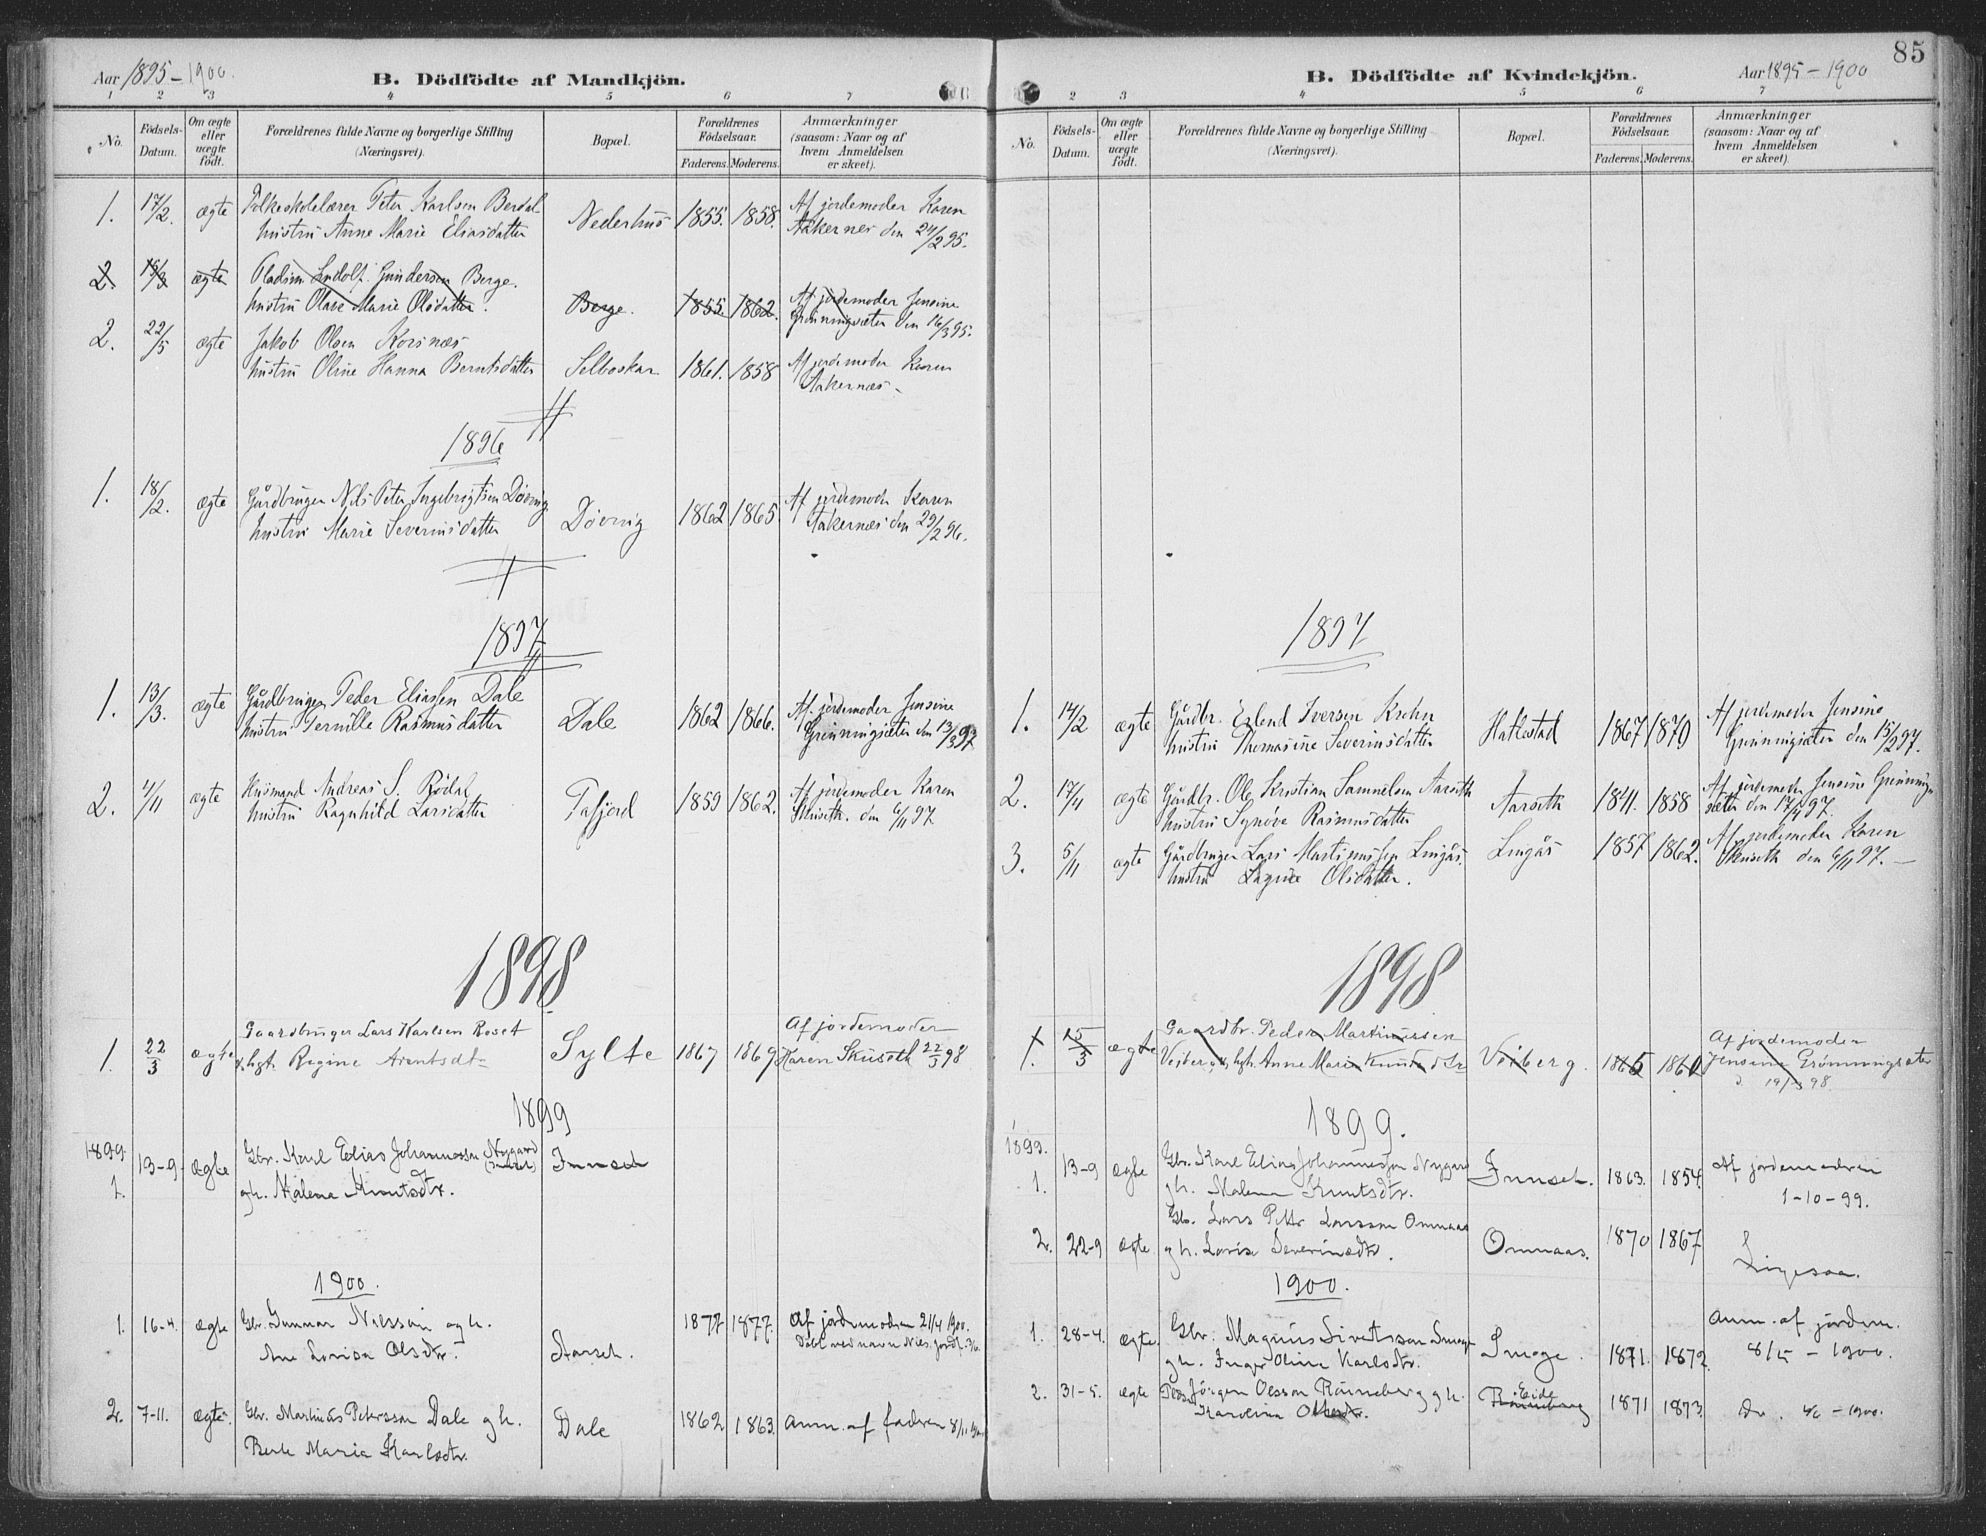 Aar 1895-1900.
B. Dödfödte af Mandkjön.
1 2 3 4 5 6 7
No.
Födsels-Datum.
Om ægte eller uægte födt.
Forældrenes fulde Navne og borgerlige Stilling (Næringsvei).
Bopæl.
Forældrenes Födselsaar.
Faderens. Moderens.
Anmærkninger (saasom: Naar og af hvem Anmeldelsen er skeet).
1. 17/2. ægte Folkeskolelærer Peter Karlsen Berdal
hustru Anne Marie Eliasdatter Nederhus 1855. 1858. Af jordemoder Karen
Aakernes den 24/2 95.
2. 15/3 ægte Ludolf Gundersen Berge.
hustru Olave Marie Olsdatter. Berge. 1855. 1862. Af jordemoder Jensine
Grønningsæter den 16/3 95.
2. 22/5 ægte Jakob Olsen Korsnæs
hustru Oline Hanna Berntsdatter Selboskar 1861. 1858 Af jordemoder Karen
Aakernæs.
1896
1. 18/2. ægte Gårdbruger Nils Peter Ingebrigtsen Døving
hustru Marie Severinsdatter Døving 1862 1865 Af jordemoder Karen
Aakernæs den 29/2 96.
1897
1. 13/3. ægte Gårdbruger Peder Eliassen Dale
hustru Pernille Rasmusdatter Dale 1862 1866. Af jordemoder Jensine
Grønningsæter den 13/3 97
2. 4/11 ægte Husmand Andreas S. Rødal
hustru Ragnhild Larsdatter Tafjord 1859 1862. Af jordemoder Karen
Skuseth. den 6/11 97
1898
1. 22/3 ægte Gaardbruger Lars Karlsen Roset
Regine Arentsdt. Sylte 1867 1869 Af jordemoder
Karen Skuseth 22/3 98
1899
1899
1. 13-9 ægte Gbr. Karl Elias Johannessen Nygard
(Innset) Innset
gh. Malena Knutsdtr.
1900.
1. 16-4. ægte Gbr. Gunnar Nilssøn og h.
Ane Lovisa Olsdtr. 1877 1877. Af jordemoderen 21/4 1900.
2. 7-11. ægte. Gbr. Martinus Peterssøn Dale gh.
Berte Maria Karlsdtr. Dale 1862 1863. Anm. af faderen 8/11
85
B. Dödfödte af Kvindekjön.
Aar 1895-1900
2 3 4 5 6 7
No.
Födsels-Datum.
Om ægte eller uægte födt.
Forældrenes fulde Navne og borgerlige Stilling (Næringsvei).
Bopæl.
Forældrenes Födselsaar.
Faderens. Moderens.
Anmærkninger (saasom: Naar og af hvem Anmeldelsen er skeet).
1897
1. 14/2 ægte Gårdbr. Erlend Iversen Krohn
hustru Thomasine Severinsdatter Hatlestad 1867 1870 Af jordemoder Jensine
Grønningsæter den 15/2 97.
2. ægte Gårdbr. Ole Kristian Samuelsen Aarseth
hustru Synøve Rasmusdatter Aarseth 1841. 1858 Af jordemoder Jensine Grønning-
sæter den 97.
3. 5/11 ægte Gårdbruger Lars Martinussen Lingås.
hustru Olsdatter. Lingås 1857 1862. Af jordemoder Karen
Skuseth den 6/11 97.
1898
1. 15/3 ægte Gaardbr. Peder Martinussen
Veiberg Anne Marie Knudsdtr Veiberg. 1865 1860 Af jordemoder
Jensine Grønningsæter
19/3 98.
1899.
1899.
1. 13-9 ægte Gbr. Karl Elias Johannessøn Nygard
gh. Malena Knutsdtr. Innset. 1863. 1854. Af jordemoderen
1-10-99.
2. 22-9 ægte. Gbr. Lars Petter Larssøn Ommaas
gh. Lovise Severinsdtr. Ommaas. 1870 1867
Ligesaa.
1900.
1. 28-4. ægte. Gbr. Magnus Sivertssøn Smoge
gh. Inger Olina Karlsdtr. Smoge. 1871. 1872. Anm. af jordem.
8/5 - 1900.
2. 31-5. ægte Jörgen Olssøn Rønneberg gh.
Karolina Eide
Rønneberg 1871 1873. Do. - 1900.